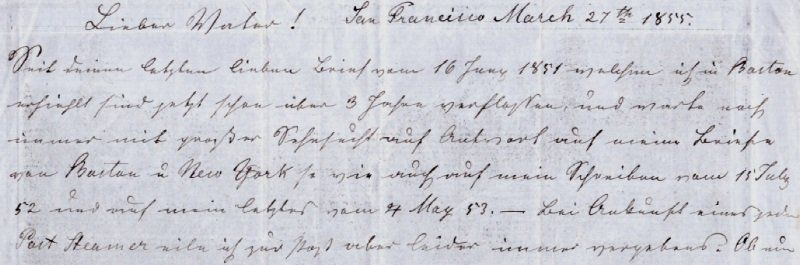 Lieber Vater! San Francisco March 27th 1855.
Seit deinen letzten lieben Brief vom 16 Juny 1851 welchen ich in Boston
erhiehlt sind jetzt schon über 3 Jahre verflossen, und warte noch
immer mit großer Sehnsucht auf Antwort auf meine Briefe
von Boston u New York so wie auch auf mein Schreiben vom 15 July
52 und auf mein letztes vom 4 May 53. — Bei Ankunft eines jeden
Post Steamer eile ich zur Post aber leider immer vergebens. Ob nun